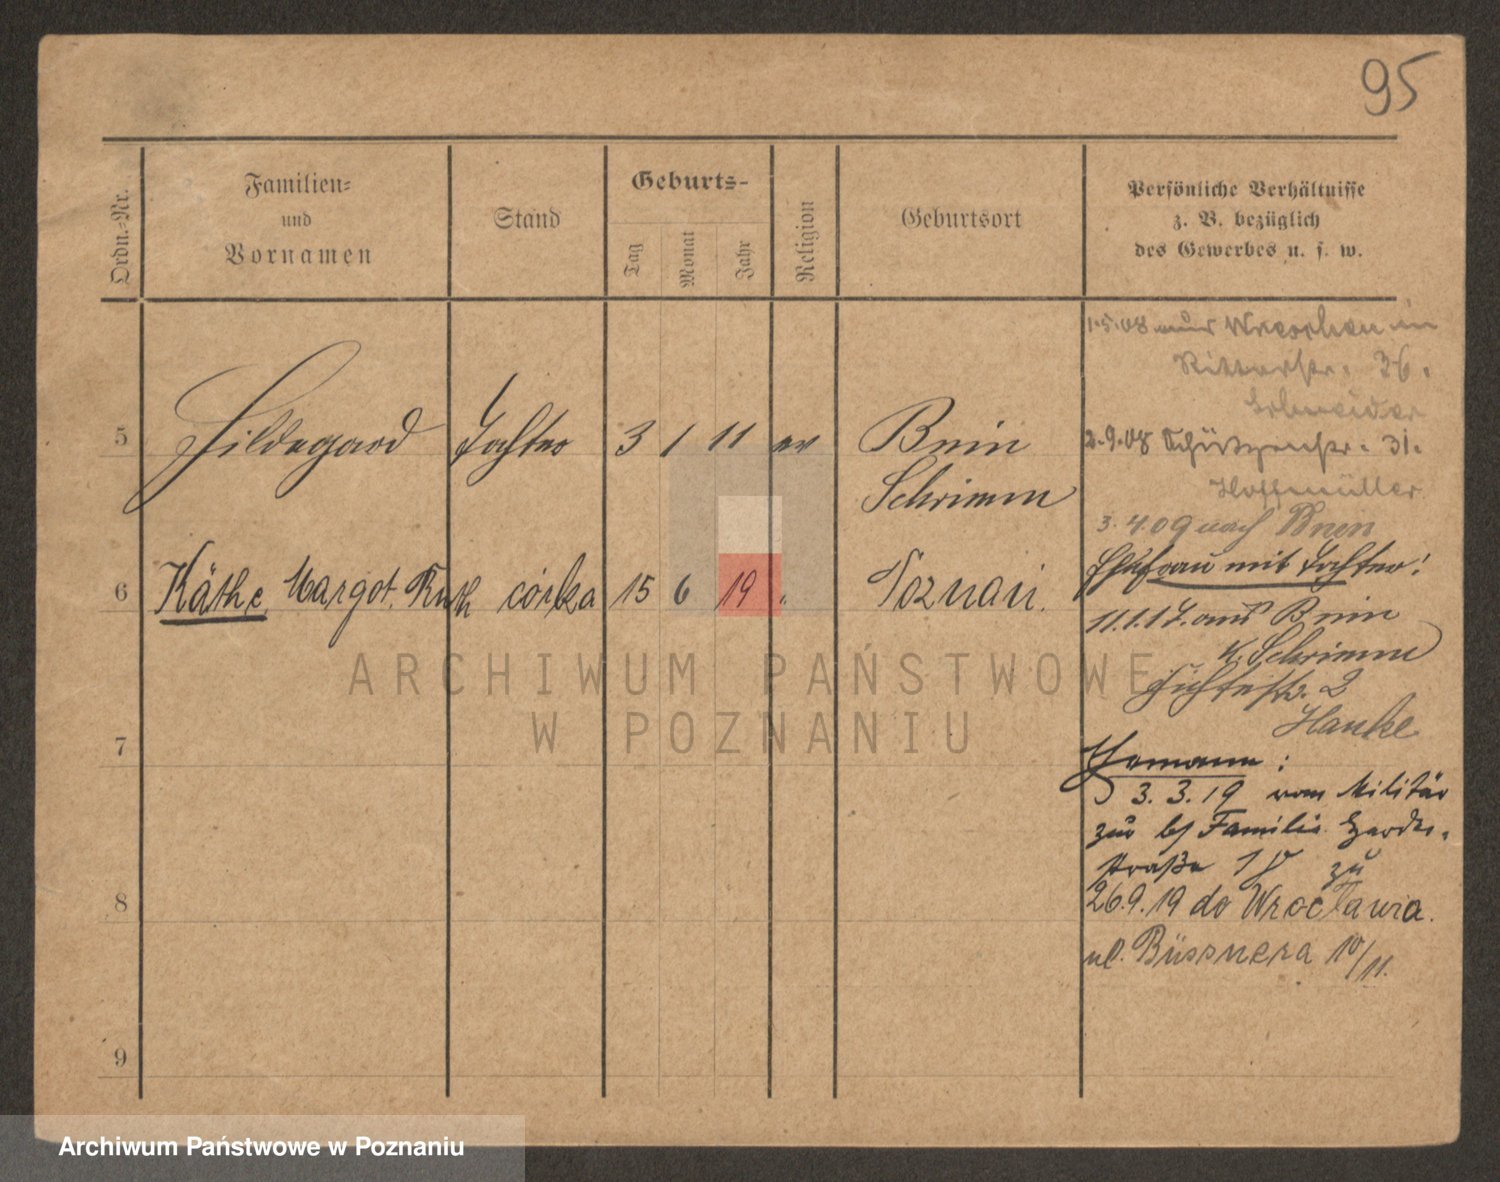 95
Ordn.-Nr.
Familien-
und
Vornamen
Stand
Geburts-
Tag
Monat
Jahr
Religion
Geburtsort
Persönliche Verhältnisse
z. B. bezüglich
des Gewerbes u. s. w.
1.5.08 Wreschen
Ritterstr. 36.
Schneider
5 Hildegard Tochter 3 1 11 ev Bnin
Schrimm
2.9.08 Schützenstr. 31.
Hoffmüller
3.4.09 nach Bnin
6 Käthe Margot Ruth córka 15 6 19 " Poznań.
Ehefrau mit Tochter:
11.1.17. aus Bnin
K. Schrimm
Fichtestr. 2
Hanke
7
Ehemann:
3.3.19 vom Militär
zur Familie
straße zu
8
26.9.19 do Wrocławia.
ul. Büssnera 10/11.
9
ARCHIWUM PAŃSTWOWE
W POZNANIU
Archiwum Państwowe w Poznaniu